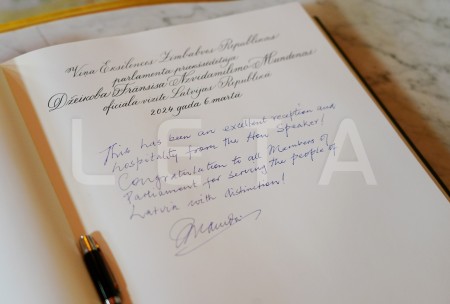 Viņa Ekselences Zimbabves Republikas
parlamenta priekšsēdētāja
Džeikoba Fransisa Nzvidamilimo Mundenas
oficiālā vizīte Latvijas Republikā
2024. gada 6. martā
This has been an excellent reception and
hospitality from the Hon Speaker!
Congratulation to all Members of
Parliament for serving the people of
Latvia with distinction!
LETA